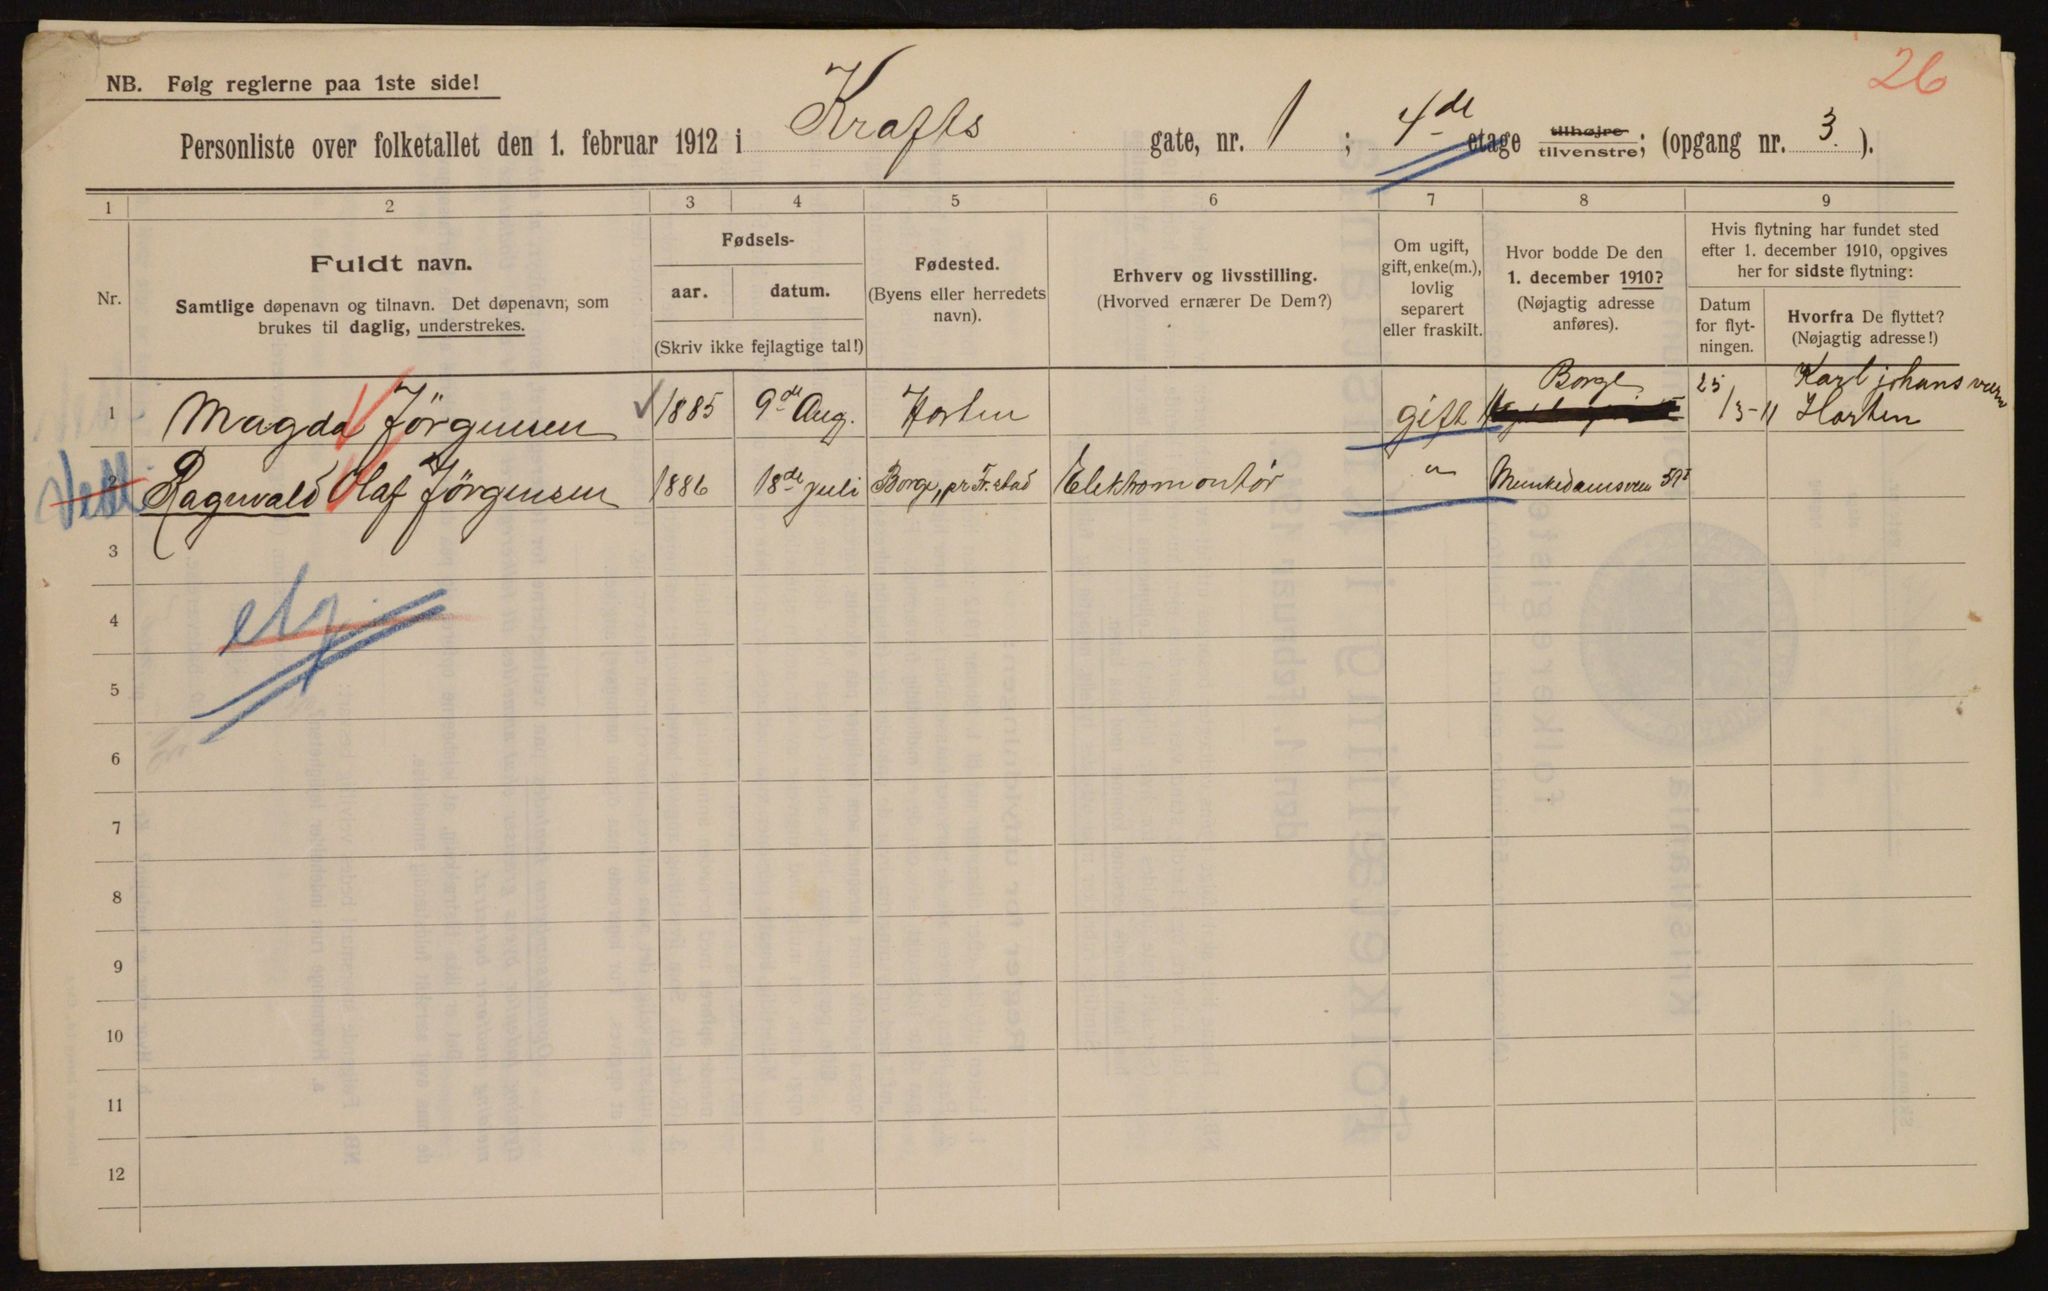 26
NB. Følg reglerne paa 1ste side!
Personliste over folketallet den 1. februar 1912 i Krafts gate, nr. 1; 4de etage tilhøjre tilvenstre; (opgang nr. 3.).
1 2 3 4 5 6 7 8 9
Nr.
Fuldt navn.
Samtlige døpenavn og tilnavn. Det døpenavn, som
brukes til daglig, understrekes.
Fødsels-
aar. datum.
(Skriv ikke fejlagtige tal!)
Fødested.
(Byens eller herredets
navn).
Erhverv og livsstilling.
(Hvorved ernærer De Dem?)
Om ugift,
gift, enke(m.),
lovlig
separert
eller fraskilt.
Hvor bodde De den
1. december 1910?
(Nøjagtig adresse
anføres).
Hvis flytning har fundet sted
efter 1. december 1910, opgives
her for sidste flytning:
Datum
for flyt-
ningen.
Hvorfra De flyttet?
(Nøjagtig adresse!)
1 Magda Jörgensen 1885 9de Aug. Horten gift Borge 25/3-11 Karl johans værn Horten
2 Ragnvald Olaf Jörgensen 1886 18de juli Borge, pr Fr.stad Elektromontör " Munkedamsveien 59I
3
4
5
6
7
8
9
10
11
12